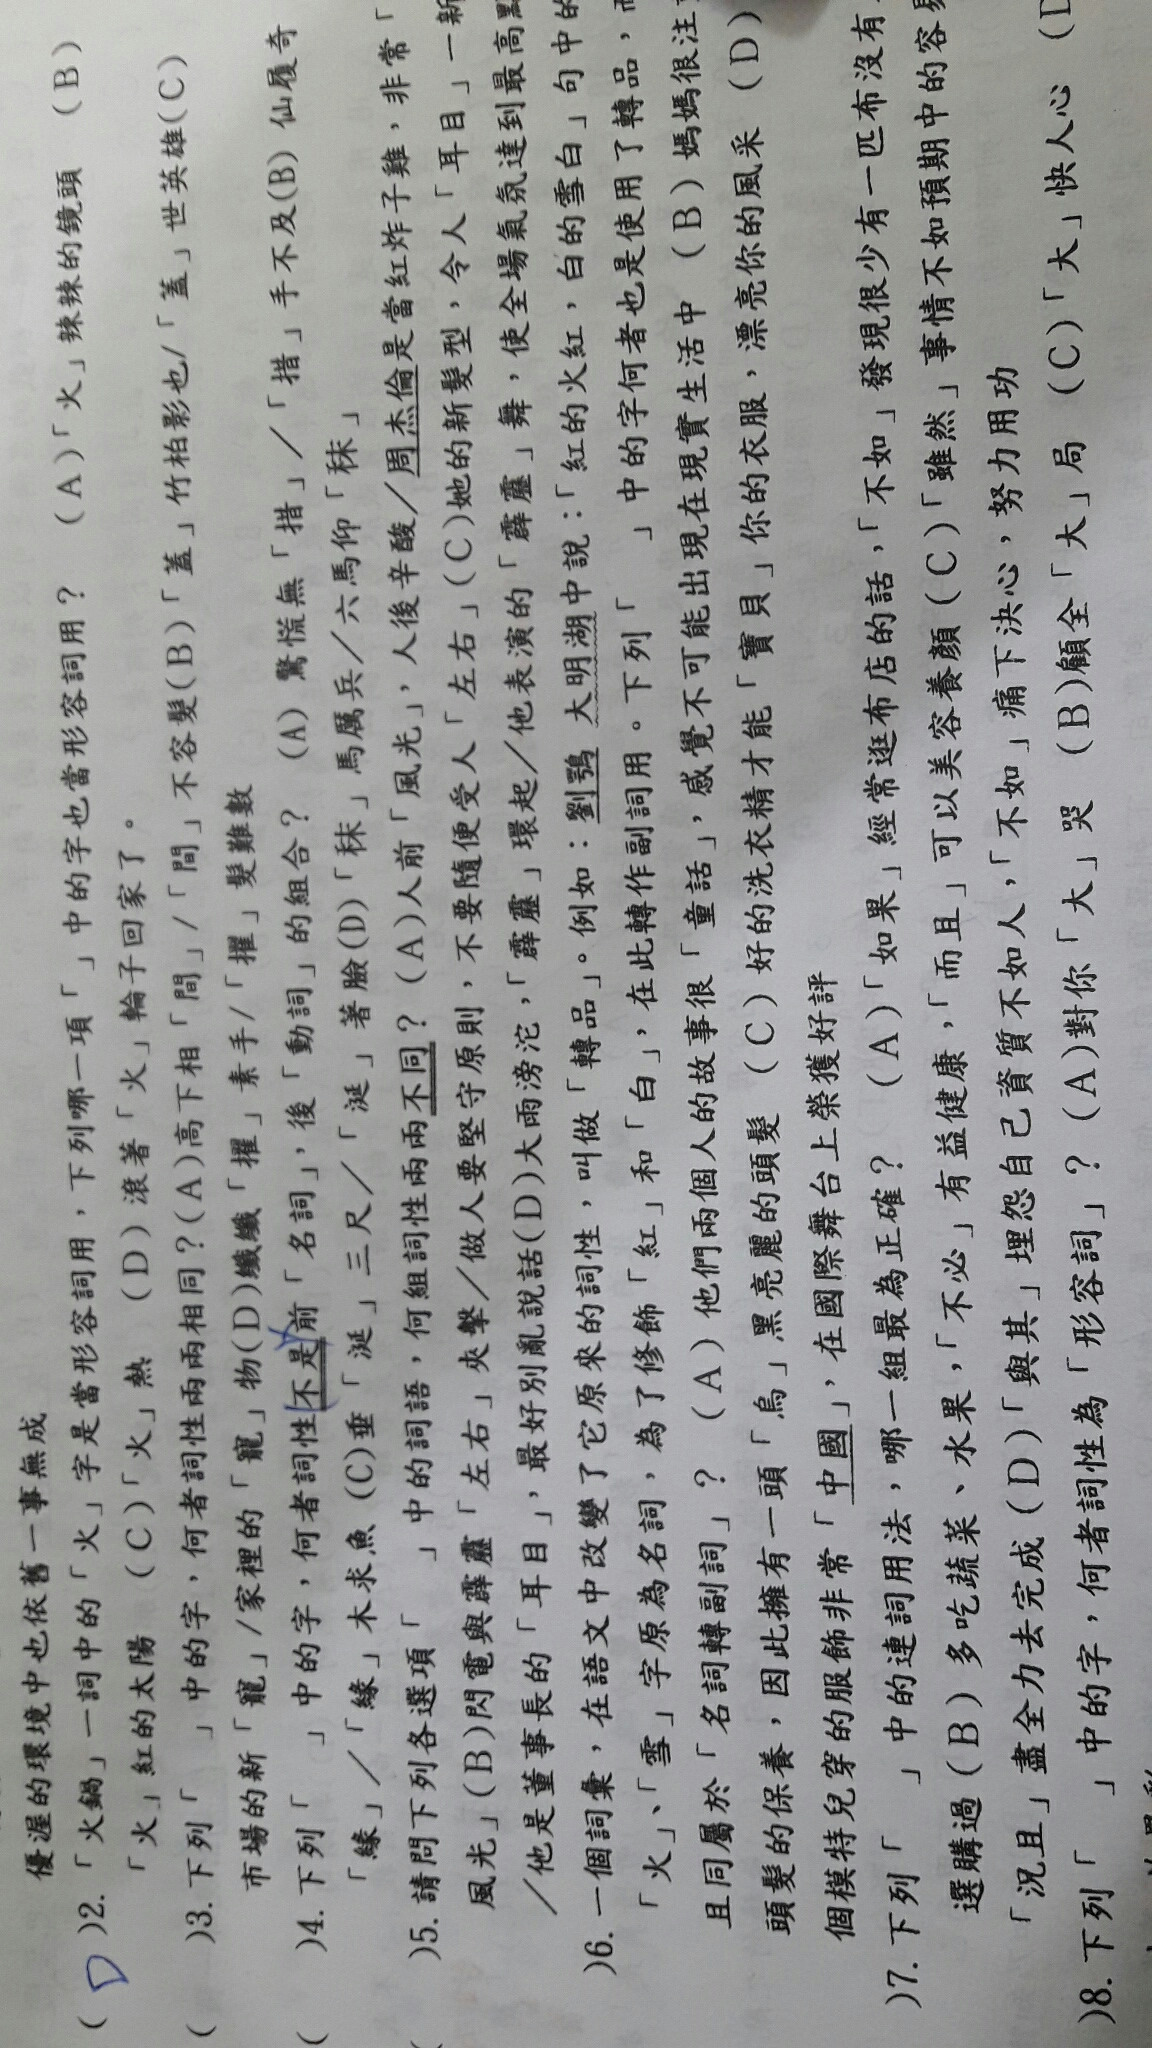 優渥的環境中也依舊一事無成
( D )2.「火鍋」一詞中的「火」字是當形容詞用，下列哪一項「　」中的字也當形容詞用？　(A)「火」辣辣的鏡頭　(B)
「火」紅的太陽　(C)「火」熱　(D)滾著「火」輪子回家了。
(　)3.下列「　」中的字，何者詞性兩兩相同？(A)高下相「間」/「間」不容髮(B)「蓋」竹柏影也/「蓋」世英雄(C)
市場的新「寵」/家裡的「寵」物(D)纖纖「擢」素手/「擢」髮難數
(　)4.下列「　」中的字，何者詞性不是前「名詞」，後「動詞」的組合？　(A)驚慌無「措」／「措」手不及(B)仙履奇
「緣」／「緣」木求魚(C)垂「涎」三尺／「涎」著臉(D)「秣」馬厲兵／六馬仰「秣」
(　)5.請問下列各選項「　」中的詞語，何組詞性兩兩不同？　(A)人前「風光」，人後辛酸／周杰倫是當紅炸子雞，非常「
風光」(B)閃電與霹靂「左右」夾擊／做人要堅守原則，不要隨便受人「左右」(C)她的新髮型，令人「耳目」一新
／他是董事長的「耳目」，最好別亂說話(D)大雨滂沱，「霹靂」環起／他表演的「霹靂」舞，使全場氣氛達到最高點
)6.一個詞彙，在語文中改變了它原來的詞性，叫做「轉品」。例如：劉鶚　大明湖中說：「紅的火紅，白的雪白」句中的
「火」、「雪」字原為名詞，為了修飾「紅」和「白」，在此轉作副詞用。下列「　」中的字何者也是使用了轉品，而
且同屬於「名詞轉副詞」？　(A)他們兩個人的故事很「童話」，感覺不可能出現在現實生活中　(B)媽媽很注
頭髮的保養，因此擁有一頭「烏」黑亮麗的頭髮　(C)好的洗衣精才能「寶貝」你的衣服，漂亮你的風采　(D)
個模特兒穿的服飾非常「中國」，在國際舞台上榮獲好評
)7.下列「　」中的連詞用法，哪一組最為正確？　(A)「如果」經常逛布店的話，「不如」發現很少有一匹布沒有
選購過(B)多吃蔬菜、水果，「不必」有益健康，「而且」可以美容養顏(C)「雖然」事情不如預期中的容易
「況且」盡全力去完成(D)「與其」埋怨自己資質不如人，「不如」痛下決心，努力用功
)8.下列「　」中的字，何者詞性為「形容詞」？(A)對你「大」哭　(B)顧全「大」局　(C)「大」快人心　(D